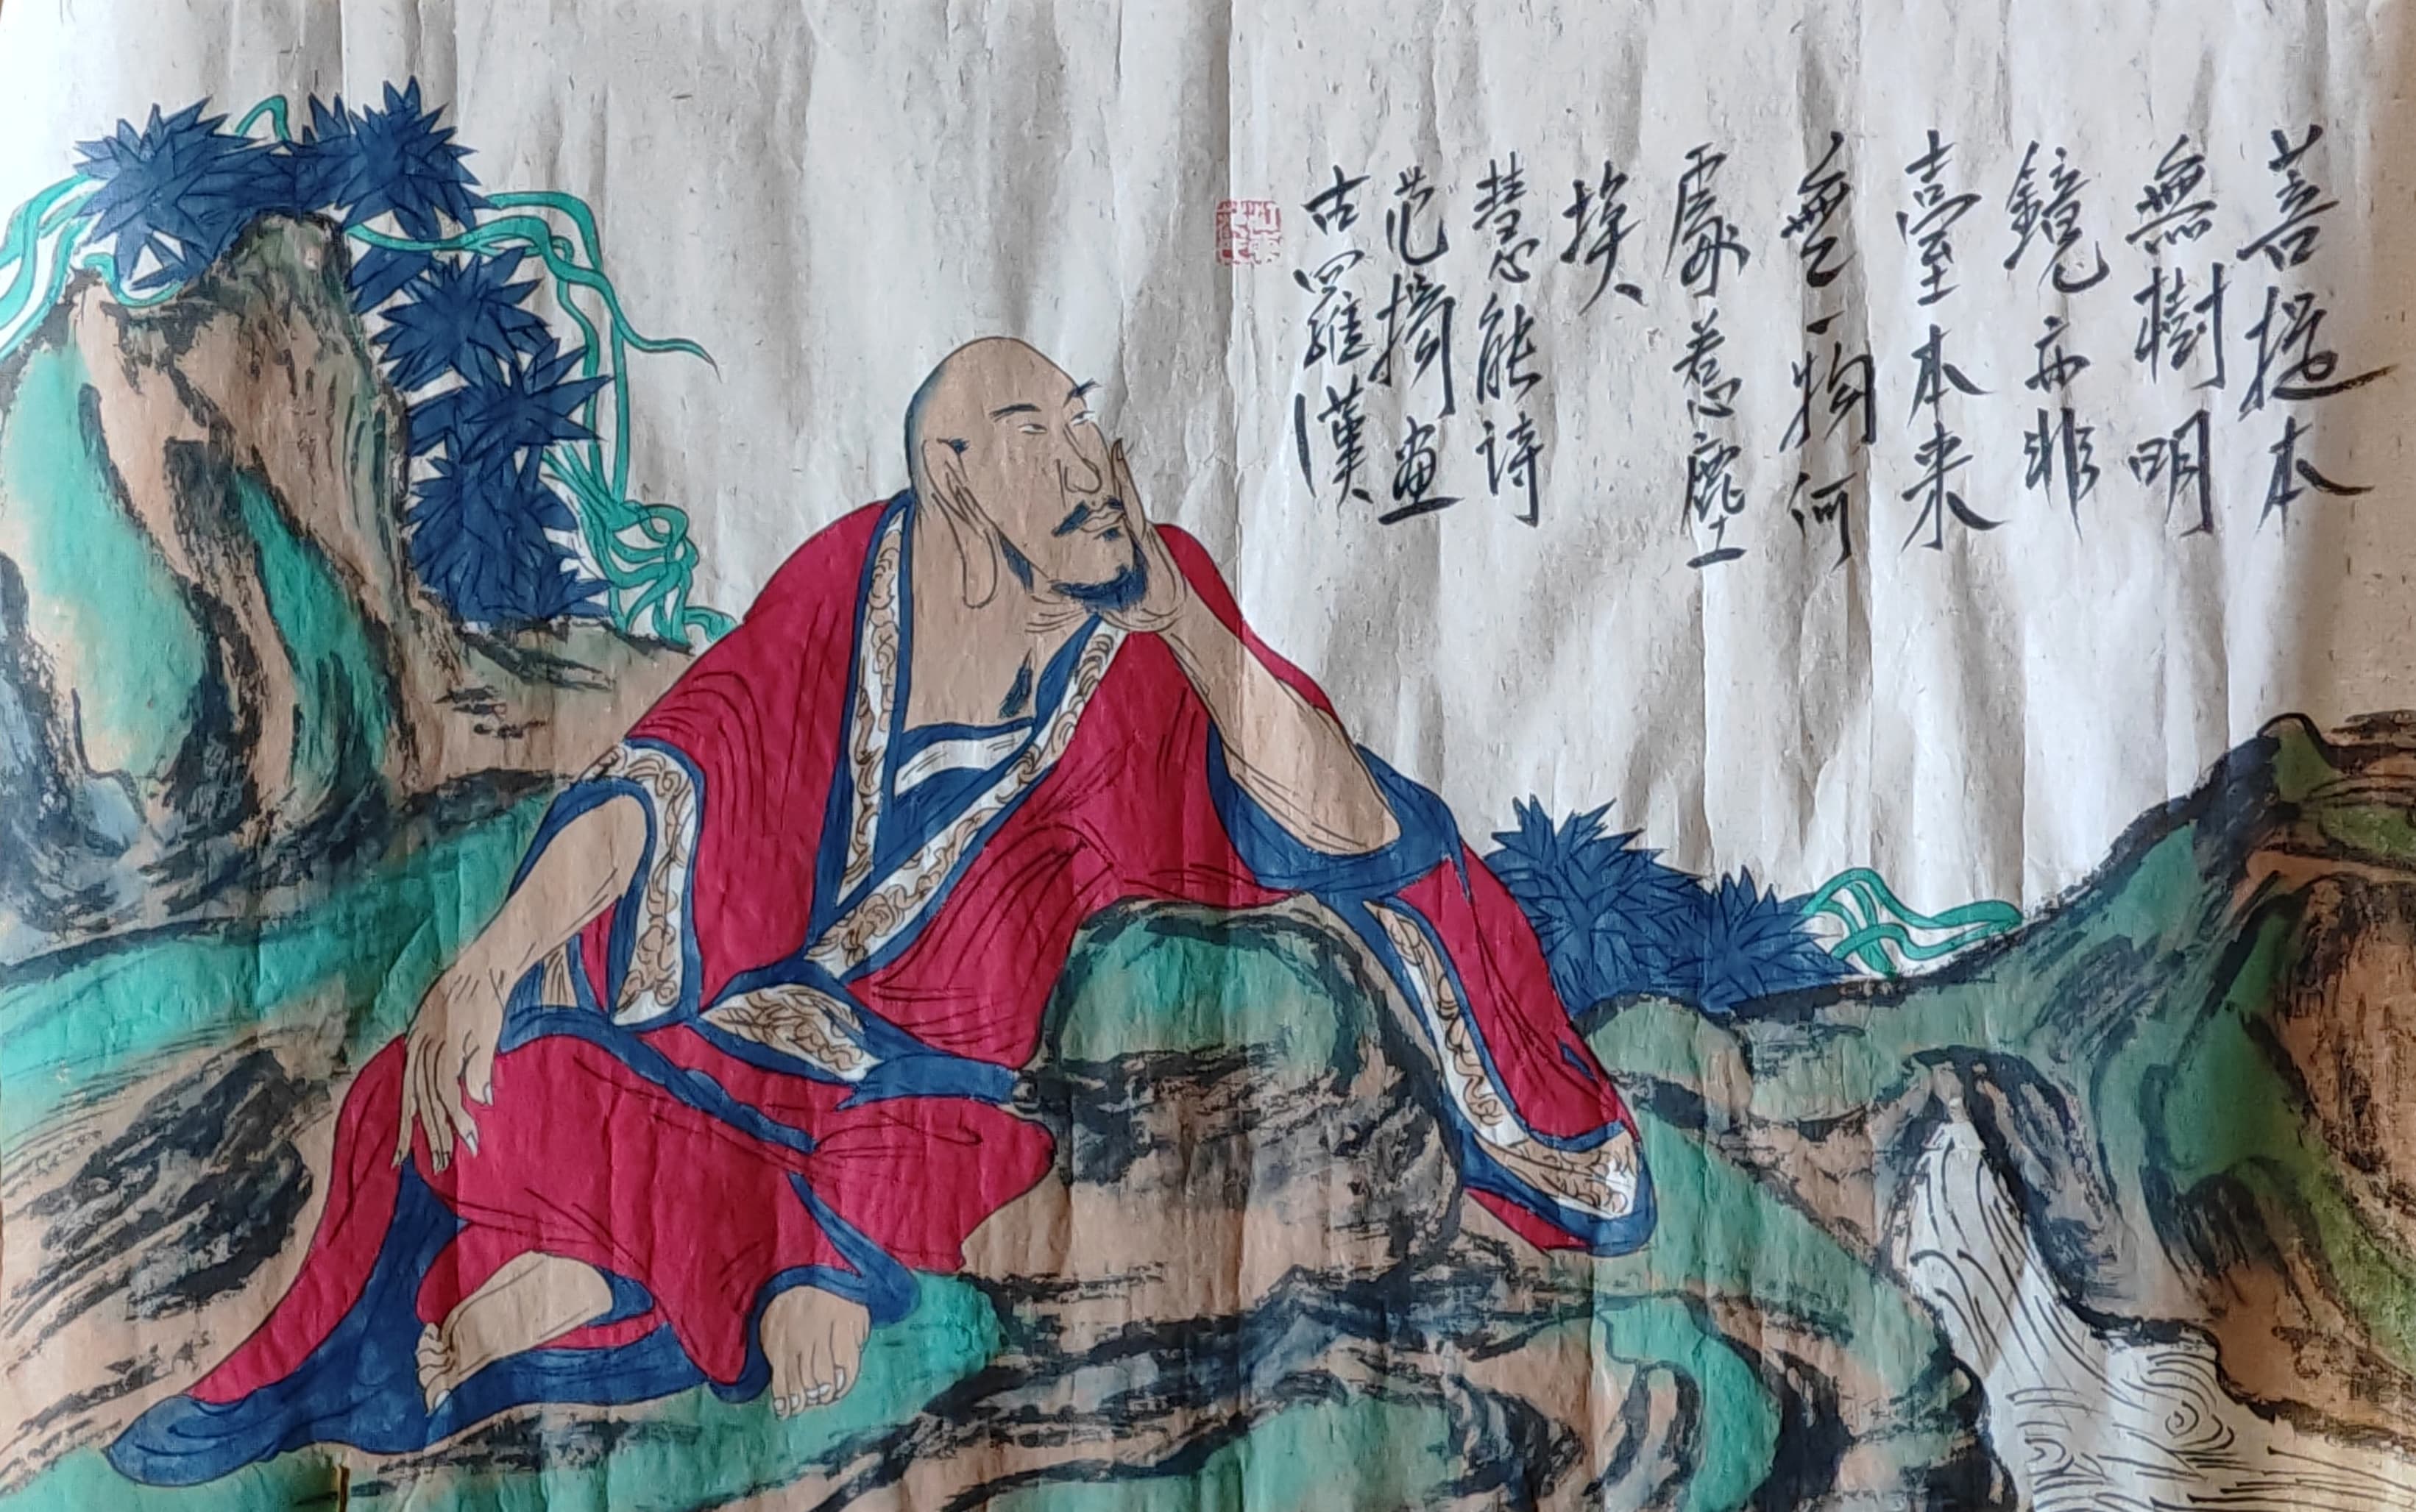 菩提本
無樹明
鏡亦非
臺本来
無一物何
處惹塵
埃
慧能詩
范畫
古羅漢